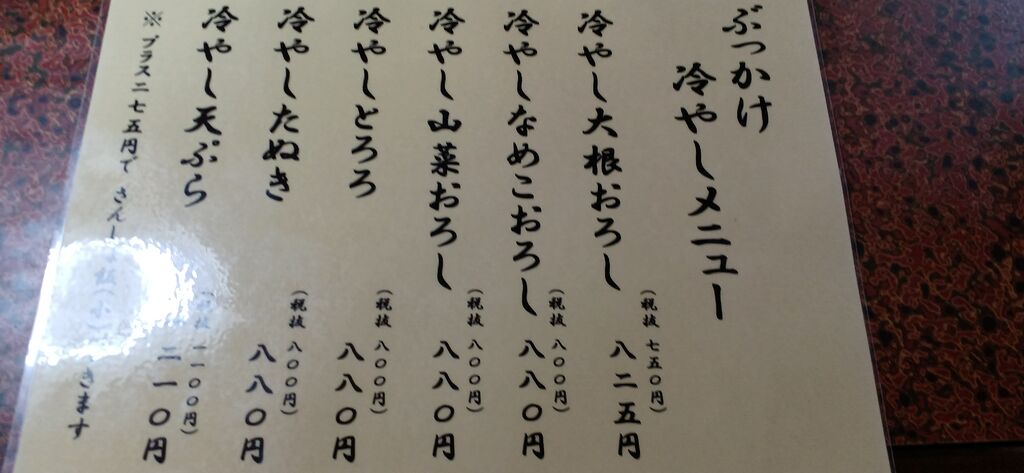 ぶっかけ
冷やしメニュー
冷やし大根おろし
(税抜 七五〇円)
八二五円
冷やしなめこおろし
(税抜 八〇〇円)
八八〇円
冷やし山菜おろし
(税抜 八〇〇円)
八八〇円
冷やしとろろ
(税抜 八〇〇円)
八八〇円
冷やしたぬき
(税抜 八〇〇円)
八八〇円
冷やし天ぷら
一一〇〇円)
二一〇円
※ プラス二七五円で さん
きます